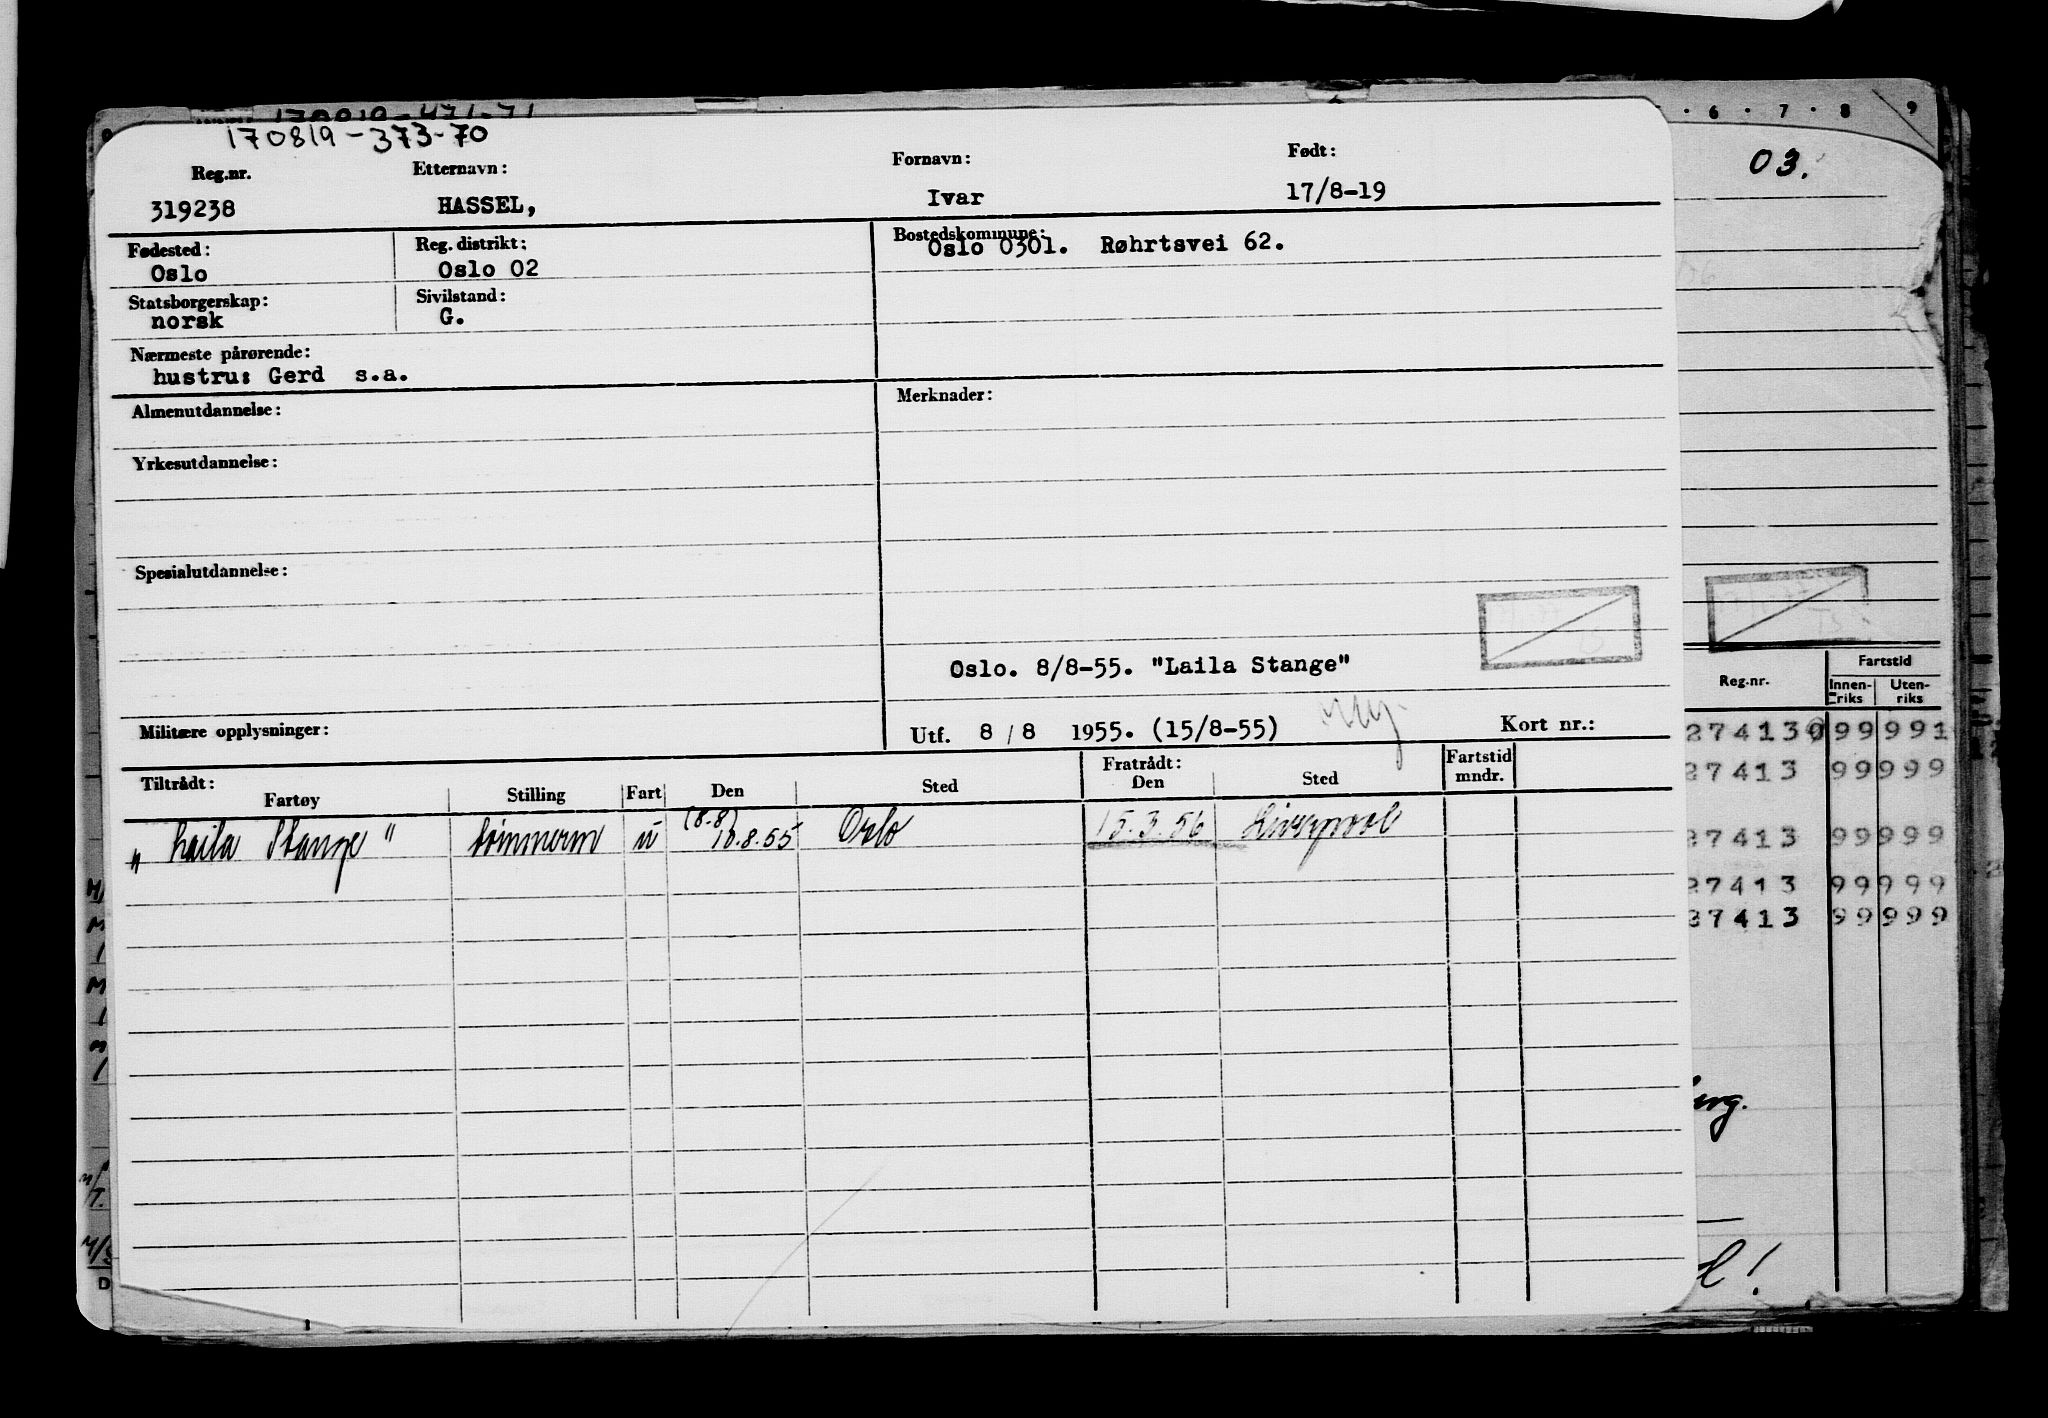 170819-471-71
170819-373-70
Reg.nr. Etternavn: Fornavn: Født:
319238 HASSEL, Ivar 17/8-19
Fødested: Reg. distrikt: Bostedskommune:
Oslo Oslo 02 Oslo 0301. Røhrtsvei 62.
Statsborgerskap: Sivilstand:
norsk G.
Nærmeste pårørende:
hustru: Gerd s.a.
Almenutdannelse: Merknader:
Yrkesutdannelse:
Spesialutdannelse:
Oslo. 8/8-55. "Laila Stange"
Militære opplysninger: Utf. 8 / 8 1955. (15/8-55) Kort nr.:
Tiltrådt: Fratrådt: Fartstid
Fartøy Stilling Fart Den Sted Den Sted mndr.
(8-8)
" Laila Stange " tømmerm u 10.8.55 Oslo 15.3.56 Liverpool
6 · 7 · 8 9
03.
Fartstid
Reg.nr. Innen- Uten-
riks riks
274130 99 991
27413 99 999
27413 99 999
27413 99 999
27413 99 999